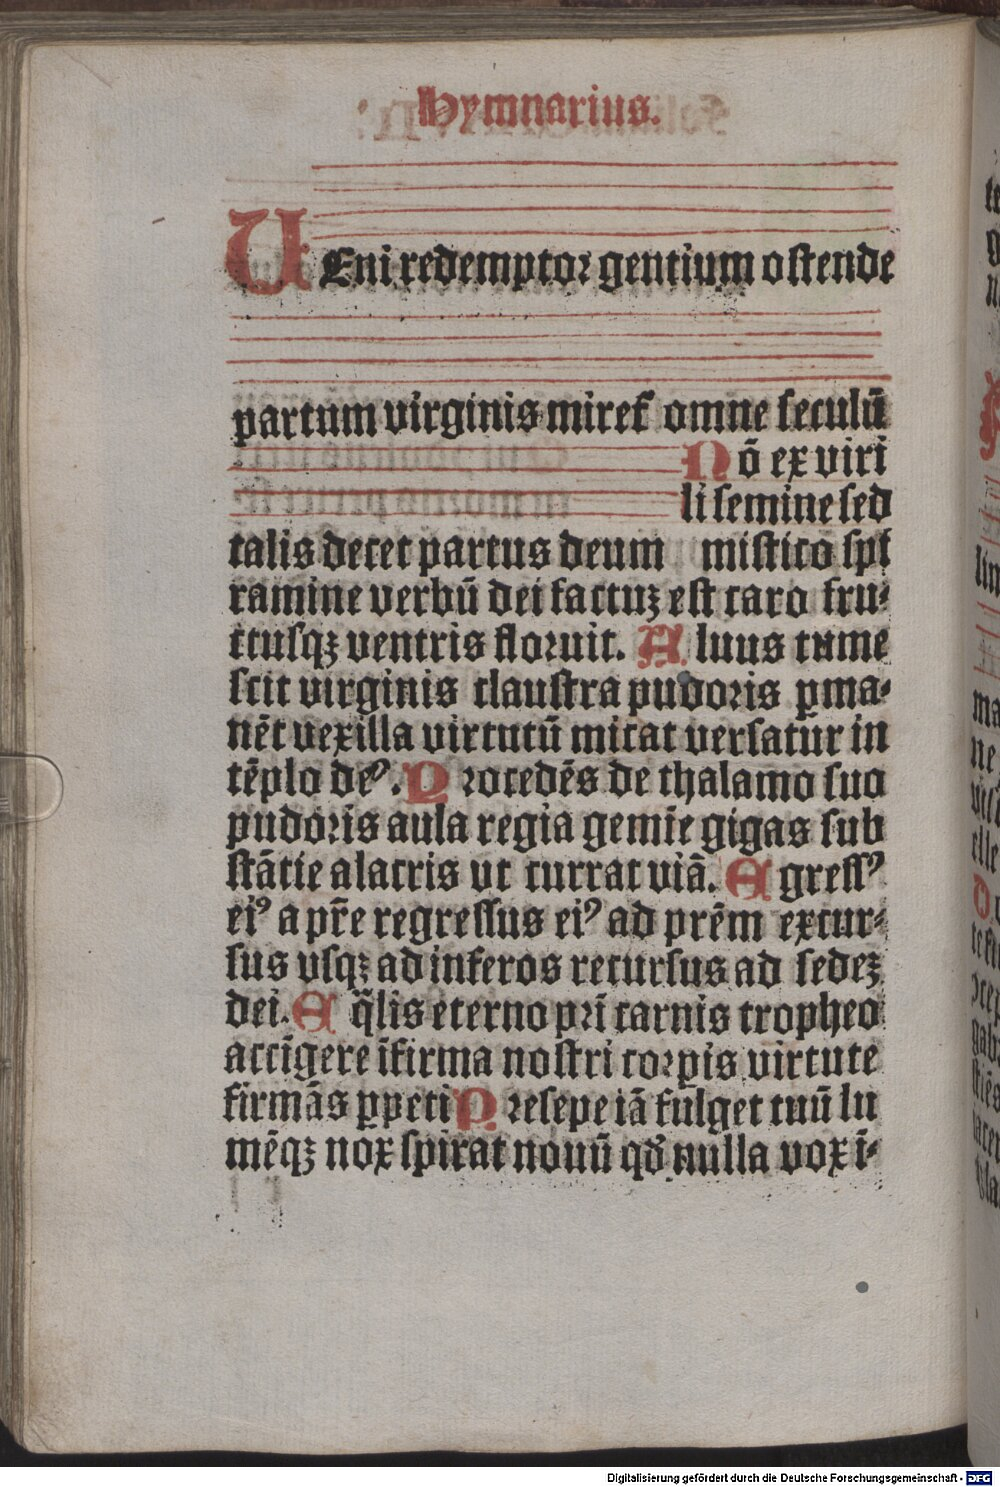 Hymnarius.
VEni redemptor gentium ostende
partum virginis miret᷑ omne seculū
Nō ex viri
li semine sed
talis decet partus deum mistico spi
ramine verbū dei factuꝫ est caro fru-
ctusqꝫ ventris floruit. Aluus tume
scit virginis claustra pudoris ꝑma-
nēt vexilla virtutū micat versatur in
tēplo deꝰ. Procedēs de thalamo suo
pudoris aula regia gemīe gigas sub
stātie alacris vt currat viā. Egressꝰ
eiꝰ a pr̄e regressus eiꝰ ad prēm excur-
sus vsqꝫ ad inferos recursus ad sedeꝫ
dei. Eq̄lis eterno pr̄i carnis tropheo
accīgere īfirma nostri corꝑis virtute
firmās ꝑpeti Presepe iā fulget tuū lu
mēqꝫ nox spirat nouū qđ nulla vox ī-
Digitalisierung gefördert durch die Deutsche Forschungsgemeinschaft - DFG